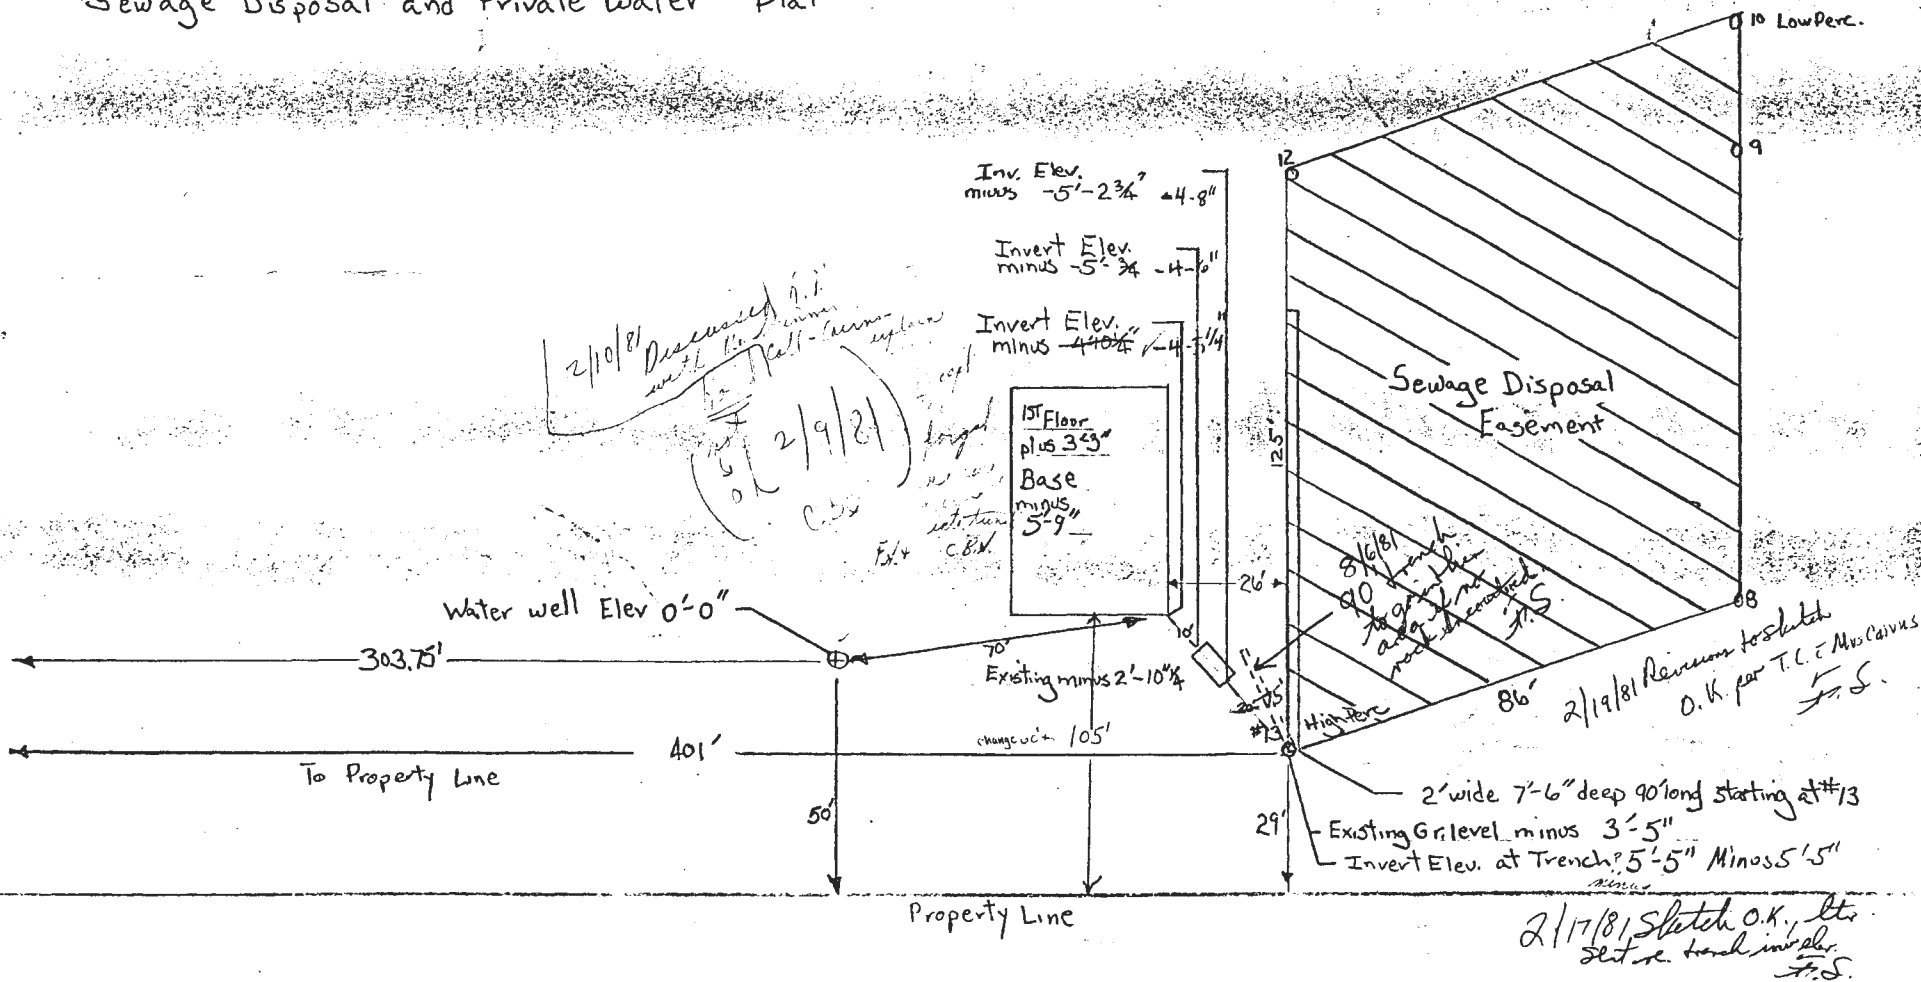 Sewage Disposal and Private Water Plat
10 Low Perc.
9
12
Inv. Elev.
minus -5'-2 3/4" -4-8"
Invert Elev.
minus -5'-3/4 -4-6"
Invert Elev.
minus 4'10 1/4" -4-5 1/4"
2/10/81 Discussed
with
Call-
explain
2/9/81
1ST Floor
plus 3'-3"
Base
minus
5'-9"
125'
Sewage Disposal
Easement
26'
8/6/81
90' trench
to go in
area if no
rock encountered.
F.S.
Water well Elev 0'-0"
303.75'
70'
10'
Existing minus 2'-10" 1/4
1'
15'
#13
High Perc
86'
8
2/19/81 Revisions to sketch
O.K. per T.C. Mrs Cairns
F.S.
401'
To Property Line
105'
50'
29'
2' wide 7'-6" deep 90' long starting at #13
Existing Gr. level minus 3'-5"
Invert Elev. at Trench? 5'-5" Minus 5'-5"
minus
Property Line
2/17/81 Sketch O.K., ltr.
sent re. trench inv elev.
F.S.